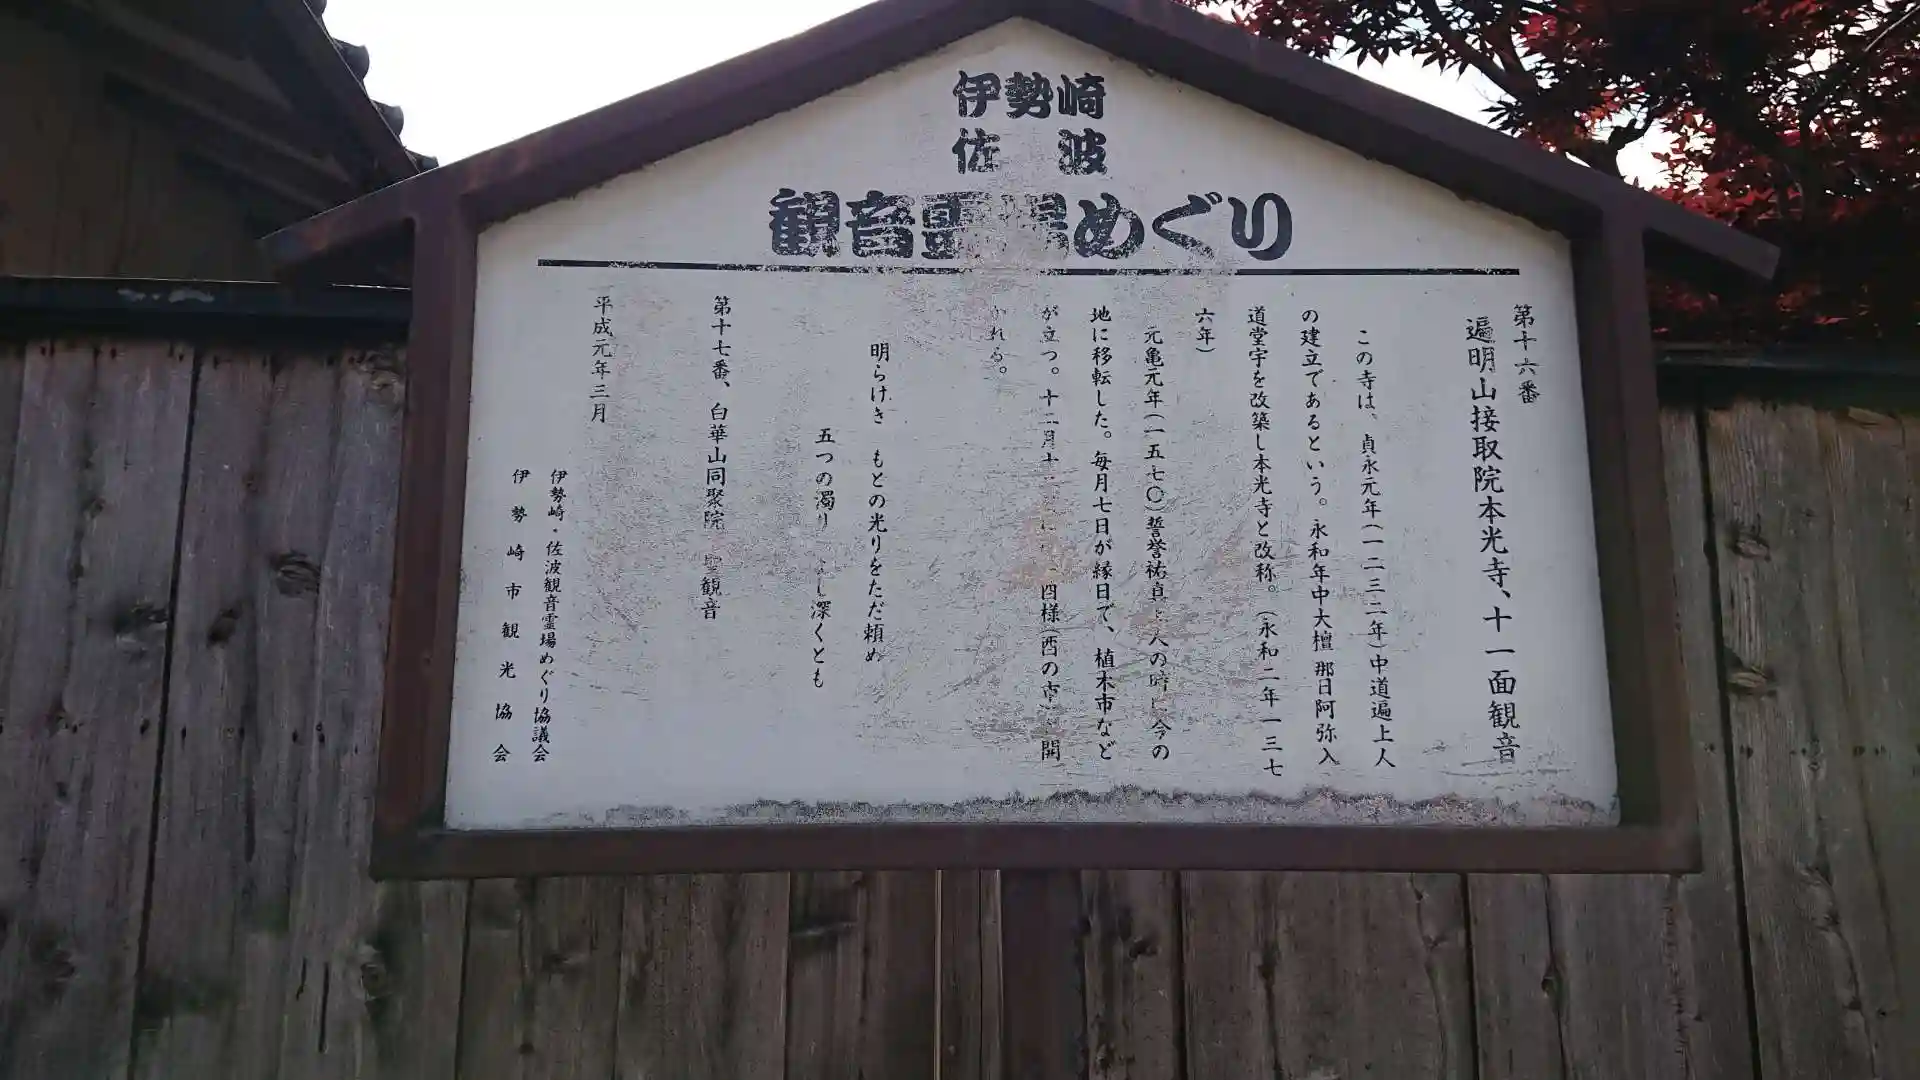 伊勢崎
佐波
観音霊場めぐり
第十六番
遍明山接取院本光寺、十一面観音
この寺は、貞永元年(一二三二年)中道遍上人
の建立であるという。永和年中大檀那日阿弥入
道堂宇を改築し本光寺と改称。(永和二年一三七
六年)
元亀元年(一五七〇)誓誉祐真 人の時 今の
地に移転した。毎月七日が縁日で、植木市など
が立つ。十二月十 酉様(酉の市 開
かれる。
明らけき もとの光りをただ頼め
五つの濁り し深くとも
第十七番、白華山同聚院 聖観音
平成元年三月
伊勢崎・佐波観音霊場めぐり協議会
伊勢崎市観光協会